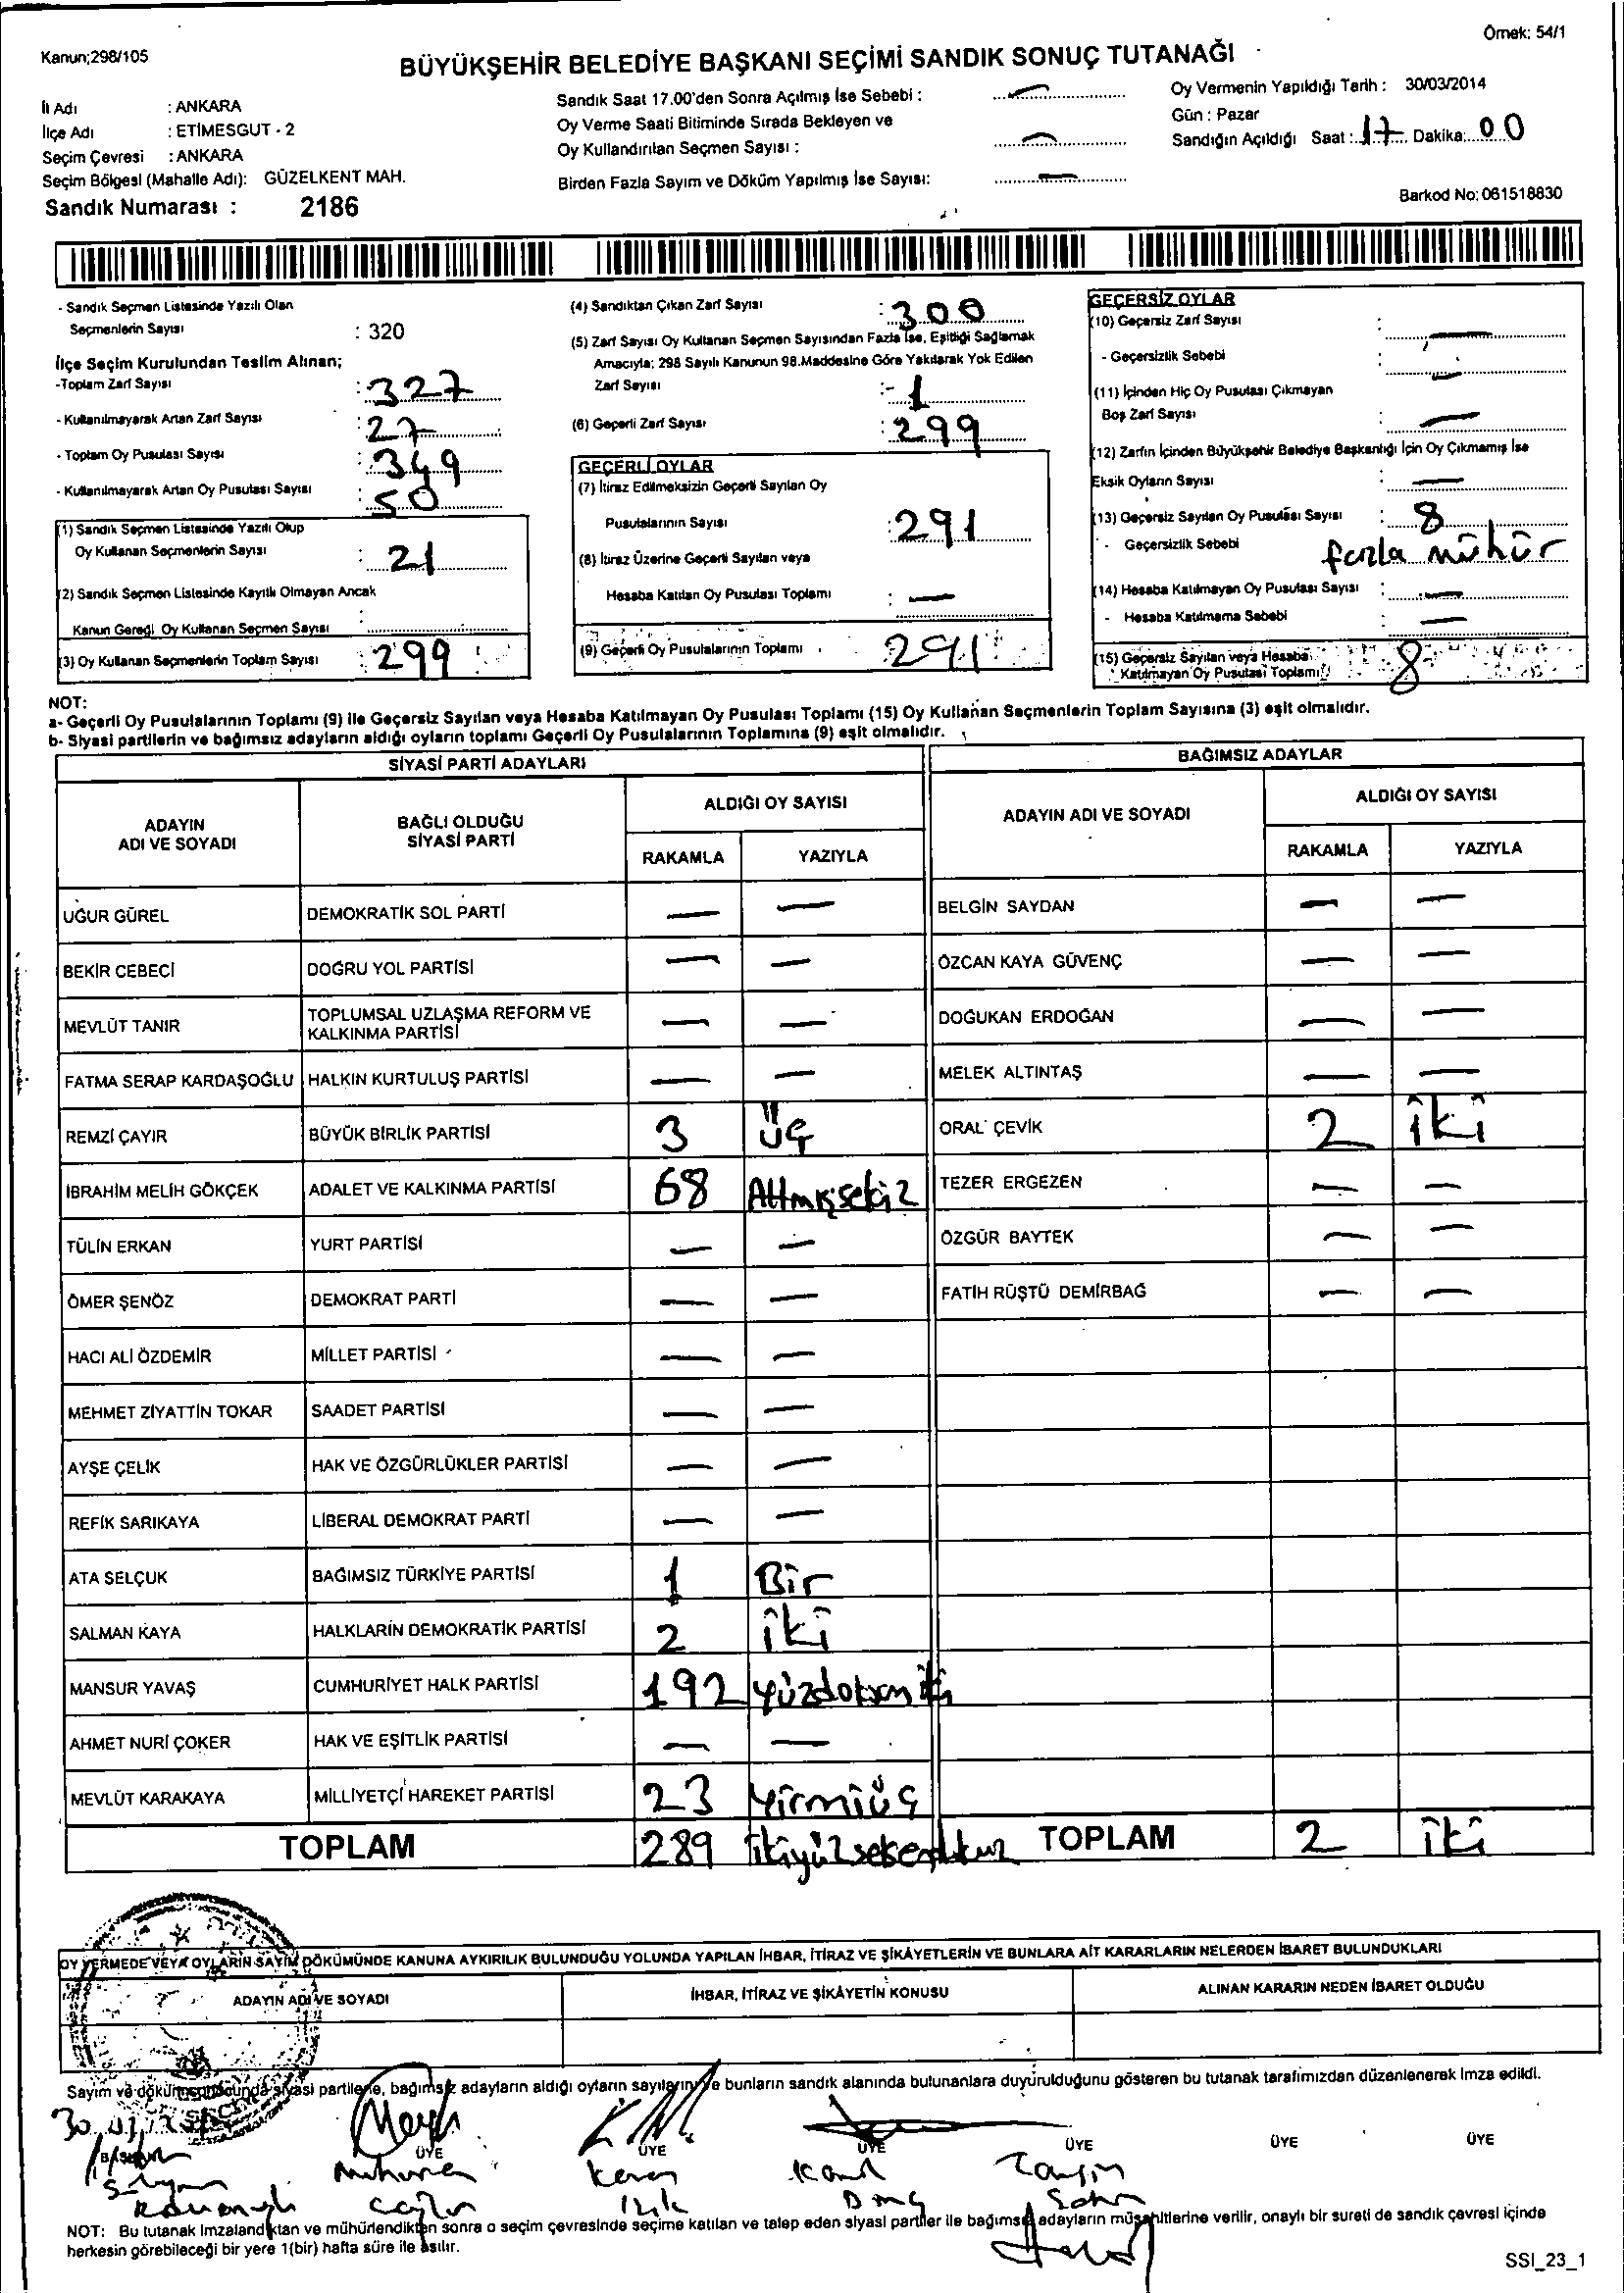 Kanun;298/105
Örnek: 54/1
BÜYÜKŞEHİR BELEDİYE BAŞKANI SEÇİMİ SANDIK SONUÇ TUTANAĞI
İl Adı : ANKARA
İlçe Adı : ETİMESGUT - 2
Seçim Çevresi : ANKARA
Seçim Bölgesi (Mahalle Adı): GÜZELKENT MAH.
Sandık Numarası : 2186
Sandık Saat 17.00'den Sonra Açılmış İse Sebebi : —
Oy Verme Saati Bitiminde Sırada Bekleyen ve
Oy Kullandırılan Seçmen Sayısı : —
Birden Fazla Sayım ve Döküm Yapılmış İse Sayısı: —
Oy Vermenin Yapıldığı Tarih : 30/03/2014
Gün : Pazar
Sandığın Açıldığı Saat : 17 Dakika: 00
Barkod No: 061518830
- Sandık Seçmen Listesinde Yazılı Olan
Seçmenlerin Sayısı : 320
İlçe Seçim Kurulundan Teslim Alınan;
-Toplam Zarf Sayısı : 327
- Kullanılmayarak Artan Zarf Sayısı : 27
- Toplam Oy Pusulası Sayısı : 349
- Kullanılmayarak Artan Oy Pusulası Sayısı : 50
(1) Sandık Seçmen Listesinde Yazılı Olup
Oy Kullanan Seçmenlerin Sayısı : 21
(2) Sandık Seçmen Listesinde Kayıtlı Olmayan Ancak
Kanun Gereği Oy Kullanan Seçmen Sayısı :
(3) Oy Kullanan Seçmenlerin Toplam Sayısı : 299
(4) Sandıktan Çıkan Zarf Sayısı : 300
(5) Zarf Sayısı Oy Kullanan Seçmen Sayısından Fazla İse, Eşitliği Sağlamak
Amacıyla; 298 Sayılı Kanunun 98.Maddesine Göre Yakılarak Yok Edilen
Zarf Sayısı :- 1
(6) Geçerli Zarf Sayısı : 299
GEÇERLİ OYLAR
(7) İtiraz Edilmeksizin Geçerli Sayılan Oy
Pusulalarının Sayısı : 291
(8) İtiraz Üzerine Geçerli Sayılan veya
Hesaba Katılan Oy Pusulası Toplamı : —
(9) Geçerli Oy Pusulalarının Toplamı 291
GEÇERSİZ OYLAR
(10) Geçersiz Zarf Sayısı : —
- Geçersizlik Sebebi : —
(11) İçinden Hiç Oy Pusulası Çıkmayan
Boş Zarf Sayısı : —
(12) Zarfın İçinden Büyükşehir Belediye Başkanlığı İçin Oy Çıkmamış İse
Eksik Oyların Sayısı : —
(13) Geçersiz Sayılan Oy Pusulası Sayısı : 8
- Geçersizlik Sebebi fazla mühür
(14) Hesaba Katılmayan Oy Pusulası Sayısı : —
- Hesaba Katılmama Sebebi —
(15) Geçersiz Sayılan veya Hesaba
Katılmayan Oy Pusulası Toplamı 8
NOT:
a- Geçerli Oy Pusulalarının Toplamı (9) ile Geçersiz Sayılan veya Hesaba Katılmayan Oy Pusulası Toplamı (15) Oy Kullanan Seçmenlerin Toplam Sayısına (3) eşit olmalıdır.
b- Siyasi partilerin ve bağımsız adayların aldığı oyların toplamı Geçerli Oy Pusulalarının Toplamına (9) eşit olmalıdır.
SİYASİ PARTİ ADAYLARI
ADAYIN
ADI VE SOYADI
BAĞLI OLDUĞU
SİYASİ PARTİ
ALDIĞI OY SAYISI
RAKAMLA YAZIYLA
UĞUR GÜREL DEMOKRATİK SOL PARTİ — —
BEKİR CEBECİ DOĞRU YOL PARTİSİ — —
MEVLÜT TANIR TOPLUMSAL UZLAŞMA REFORM VE
KALKINMA PARTİSİ — —
FATMA SERAP KARDAŞOĞLU HALKIN KURTULUŞ PARTİSİ — —
REMZİ ÇAYIR BÜYÜK BİRLİK PARTİSİ 3 Üç
İBRAHİM MELİH GÖKÇEK ADALET VE KALKINMA PARTİSİ 68 Altmışsekiz
TÜLİN ERKAN YURT PARTİSİ — —
ÖMER ŞENÖZ DEMOKRAT PARTİ — —
HACI ALİ ÖZDEMİR MİLLET PARTİSİ — —
MEHMET ZİYATTİN TOKAR SAADET PARTİSİ — —
AYŞE ÇELİK HAK VE ÖZGÜRLÜKLER PARTİSİ — —
REFİK SARIKAYA LİBERAL DEMOKRAT PARTİ — —
ATA SELÇUK BAĞIMSIZ TÜRKİYE PARTİSİ 1 Bir
SALMAN KAYA HALKLARIN DEMOKRATİK PARTİSİ 2 iki
MANSUR YAVAŞ CUMHURİYET HALK PARTİSİ 192 yüzdoksaniki
AHMET NURİ ÇOKER HAK VE EŞİTLİK PARTİSİ — —
MEVLÜT KARAKAYA MİLLİYETÇİ HAREKET PARTİSİ 23 Yirmiüç
TOPLAM 289 ikiyüzseksendokuz
BAĞIMSIZ ADAYLAR
ADAYIN ADI VE SOYADI
ALDIĞI OY SAYISI
RAKAMLA YAZIYLA
BELGİN SAYDAN — —
ÖZCAN KAYA GÜVENÇ — —
DOĞUKAN ERDOĞAN — —
MELEK ALTINTAŞ — —
ORAL ÇEVİK 2 iki
TEZER ERGEZEN — —
ÖZGÜR BAYTEK — —
FATİH RÜŞTÜ DEMİRBAĞ — —
TOPLAM 2 iki
OY VERMEDE VEYA OYLARIN SAYIM DÖKÜMÜNDE KANUNA AYKIRILIK BULUNDUĞU YOLUNDA YAPILAN İHBAR, İTİRAZ VE ŞİKÂYETLERİN VE BUNLARA AİT KARARLARIN NELERDEN İBARET BULUNDUKLARI
ADAYIN ADI VE SOYADI İHBAR, İTİRAZ VE ŞİKÂYETİN KONUSU ALINAN KARARIN NEDEN İBARET OLDUĞU
Sayım ve dökümü sonucunda siyasi partilerle, bağımsız adayların aldığı oyların sayılarını ve bunların sandık alanında bulunanlara duyurulduğunu gösteren bu tutanak tarafımızdan düzenlenerek imza edildi.
BAŞKAN ÜYE ÜYE ÜYE ÜYE ÜYE ÜYE
NOT: Bu tutanak imzalandıktan ve mühürlendikten sonra o seçim çevresinde seçime katılan ve talep eden siyasi partiler ile bağımsız adayların müşahitlerine verilir, onaylı bir sureti de sandık çevresi içinde
herkesin görebileceği bir yere 1(bir) hafta süre ile asılır.
SSI_23_1